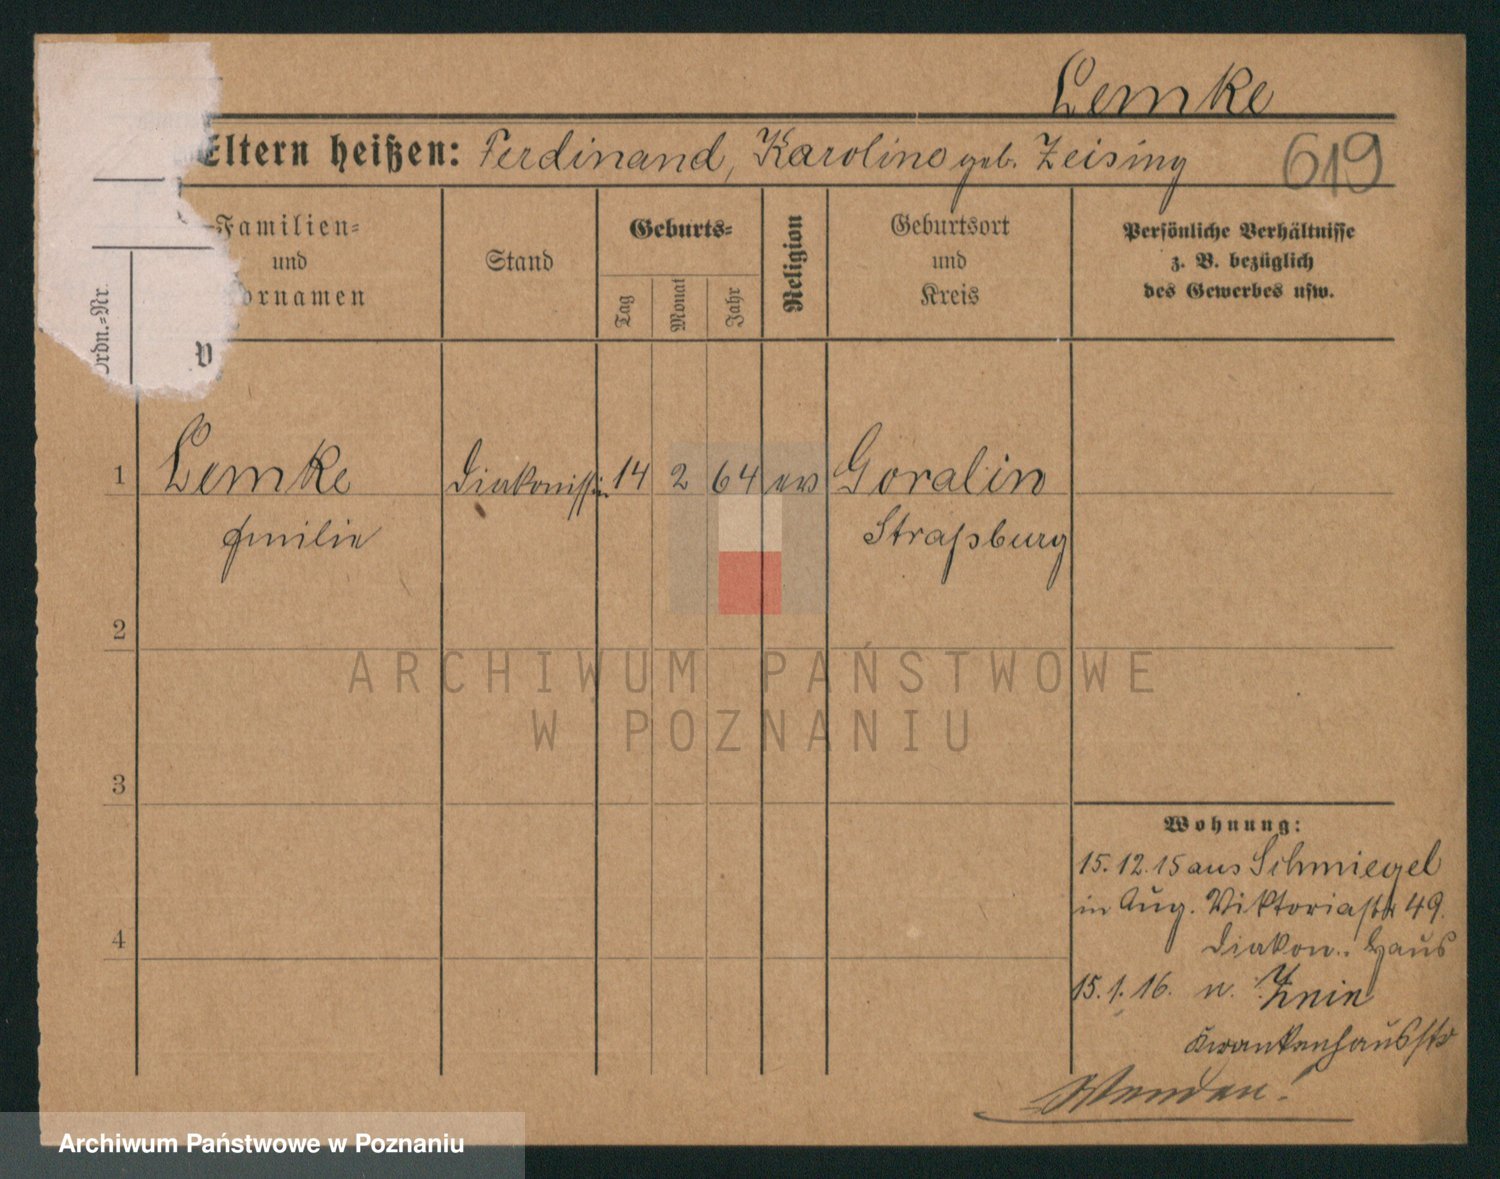 Lemke
Eltern heißen: Ferdinand, Karoline geb. Zeising
619
Ordn.-Nr.
Familien-
und
Vornamen
Stand
Geburts-
Tag
Monat
Jahr
Religion
Geburtsort
und
Kreis
Persönliche Verhältnisse
z. B. bezüglich
des Gewerbes usw.
V
1 Lemke Diakonissin 14 2 64 ev Goralin
Emilie Straßburg
2
3
4
Wohnung:
15. 12. 15 aus Schmiegel
in Aug. Viktoriastr 49.
Diakon.. Haus
15. 1. 16. n. Znin
Krankenhausstr
Wenden!
ARCHIWUM PAŃSTWOWE
W POZNANIU
Archiwum Państwowe w Poznaniu